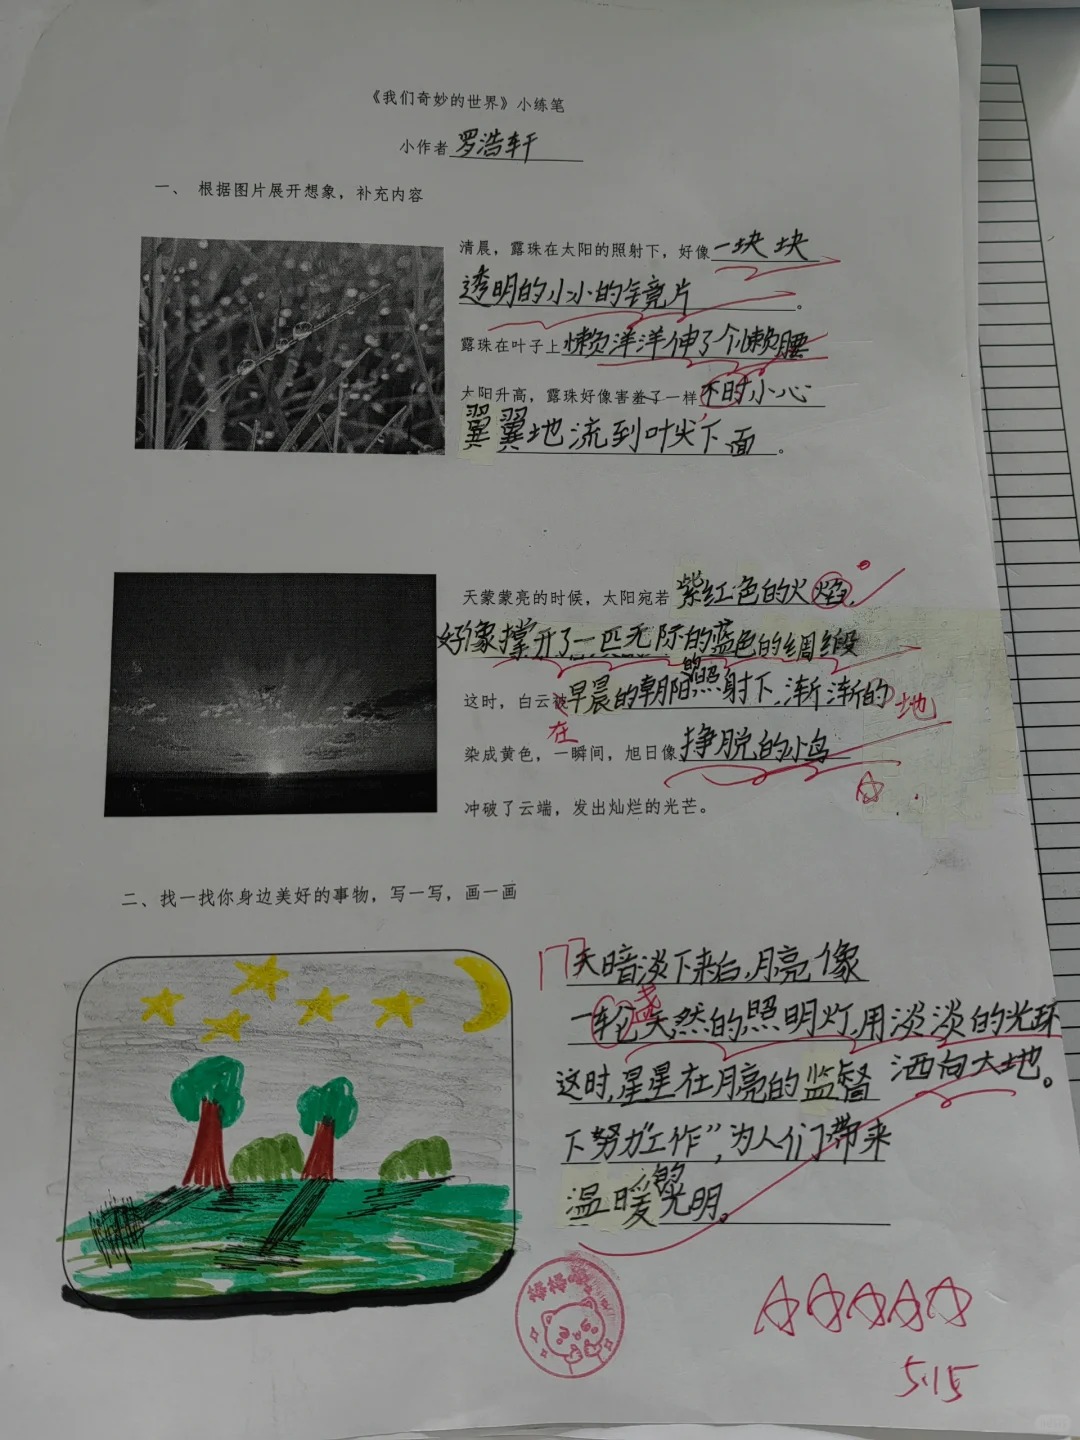 《我们奇妙的世界》小练笔
小作者 罗浩轩
一、 根据图片展开想象，补充内容
清晨，露珠在太阳的照射下，好像一块块
透明的小小的镜片。
露珠在叶子上懒洋洋伸了个懒腰
太阳升高，露珠好像害羞了一样不时小心
翼翼地流到叶尖下面。
天蒙蒙亮的时候，太阳宛若紫红色的火焰，
好像撑开了一匹无际的蓝色的绸缎
这时，白云被早晨的朝阳的照射下，渐渐的 地
在
染成黄色，一瞬间，旭日像挣脱的小鸟
冲破了云端，发出灿烂的光芒。
二、找一找你身边美好的事物，写一写，画一画
天暗淡下来后，月亮像
一轮天然的照明灯，用淡淡的光环
盏
洒向大地。
这时，星星在月亮的监督
下努力“工作”，为人们带来
温暖的光明。
棒棒
5.15